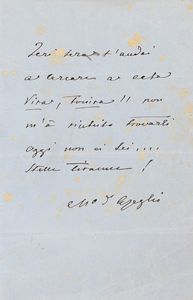 Jeri sera t'andai
a cercare a casa
Viva, !! non
m'è riuscito trovarti
oggi non ci sei....
stelle tiranne!
Azeglio